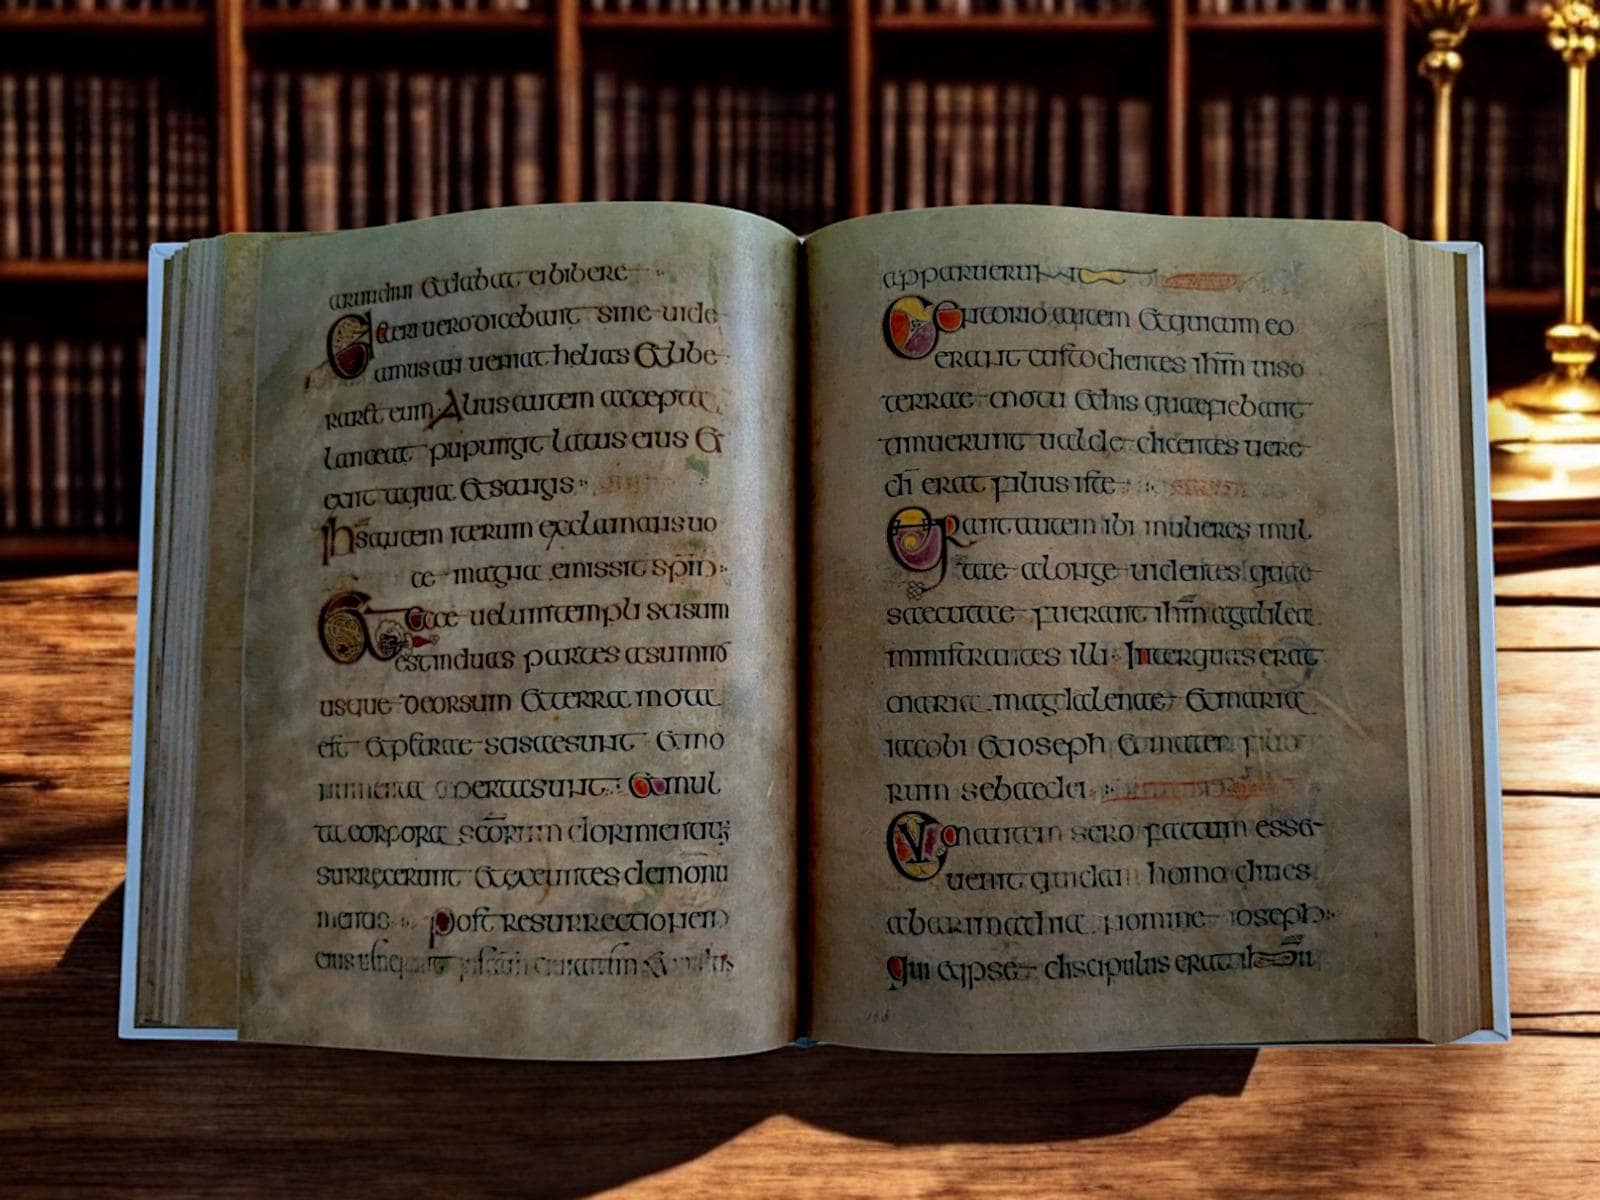 arundini & dabat ei bibere
Caeteri uero dicebant sine uide
amus an ueniat helias & libe
rar& eum Alius autem accepta
lancea pupungit latus eius &
exiit aqua & sangis
ihs autem iterum exclamans uo
ce magna emissit spm
Et ecce uelum templi scisum
est in duas partes a summo
usque deorsum & terra mota
est & petrae scissae sunt & mo
numenta aperta sunt & mul
ta corpora scorum dormientium
surrexerunt & exeuntes de monu
mentis post resurrectionem
eius
apparuerunt
Centorio autem & qui cum eo
erant custodientes ihm uiso
terrae motu & his quae fiebant
timuerunt ualde dicentes uere
di erat filius iste
Erant autem ibi mulieres mul
tae a longe uidentes quae
saecutae fuerant ihm a galilea
ministrantes illi Inter quas erat
maria magdalenae & maria
iacobi & ioseph & mater filio
rum sebaedei
Cum autem sero factum esset
uenit quidam homo diues
ab arimathia nomine ioseph
qui & ipse discipulus erat ihu